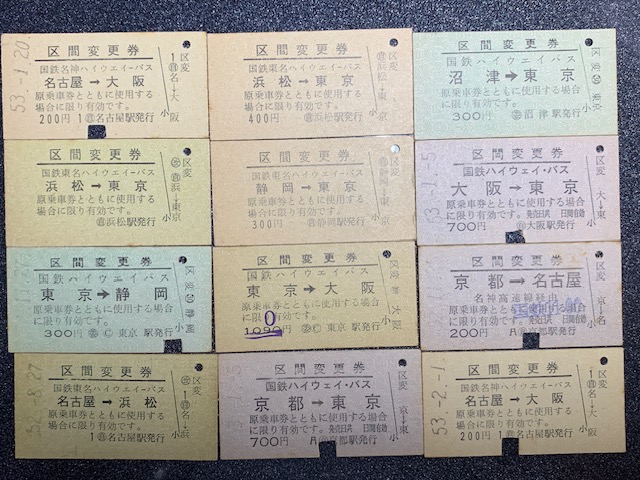 区間変更券
国鉄名神ハイウエイ・バス
名古屋→大阪
原乗車券とともに使用する
場合に限り有効です。
200円 1 名古屋駅発行
53.-1.20.
区変
名→大阪
小
区間変更券
国鉄東名ハイウエイ・バス
浜松→東京
原乗車券とともに使用する
場合に限り有効です。
400円 浜松駅発行
区変
浜松→東京
小
区間変更券
沼津→東京
原乗車券とともに使用する
場合に限り有効です。
300円 沼津駅発行
区変
東京
小
区間変更券
国鉄東名ハイウエイ・バス
浜松→東京
原乗車券とともに使用する
場合に限り有効です。
浜松駅発行
区変
浜→東京
小
区間変更券
国鉄東名ハイウエイ・バス
静岡→東京
原乗車券とともに使用する
場合に限り有効です。
300円 静岡駅発行
区変
静岡→東京
小
区間変更券
国鉄ハイウェイ・バス
大阪→東京
原乗車券とともに使用する
場合に限り有効です。 発売日共 日間有効
700円 大阪駅発行
区変
大→東
小
区間変更券
国鉄ハイウエイバス
東京→静岡
原乗車券とともに使用する場合
に限り有効です。
300円 東京駅発行
区変
静岡
小
区間変更券
国鉄ハイウエイバス
東京→大阪
原乗車券とともに使用する場合
に限り有効です。
0
1090円 東京駅発行
区変
大阪
小
区間変更券
国鉄ハイウェイ・バス
京都→名古屋
名神高速線経由
原乗車券とともに使用する
場合に限り有効です。 発売日共 日間有効
200円 京都駅発行
区変
京→名
小
区間変更券
国鉄東名ハイウエイ・バス
名古屋→浜松
原乗車券とともに使用する
場合に限り有効です。
1 名古屋駅発行
-8.27
区変
名→浜
小
区間変更券
国鉄ハイウェイ・バス
京都→東京
原乗車券とともに使用する
場合に限り有効です。 発売日共 日間有効
700円 京都駅発行
区変
京→東
小
区間変更券
国鉄名神ハイウエイ・バス
名古屋→大阪
原乗車券とともに使用する
場合に限り有効です。
200円 1 名古屋駅発行
53.-2.-1
区変
名→大阪
小